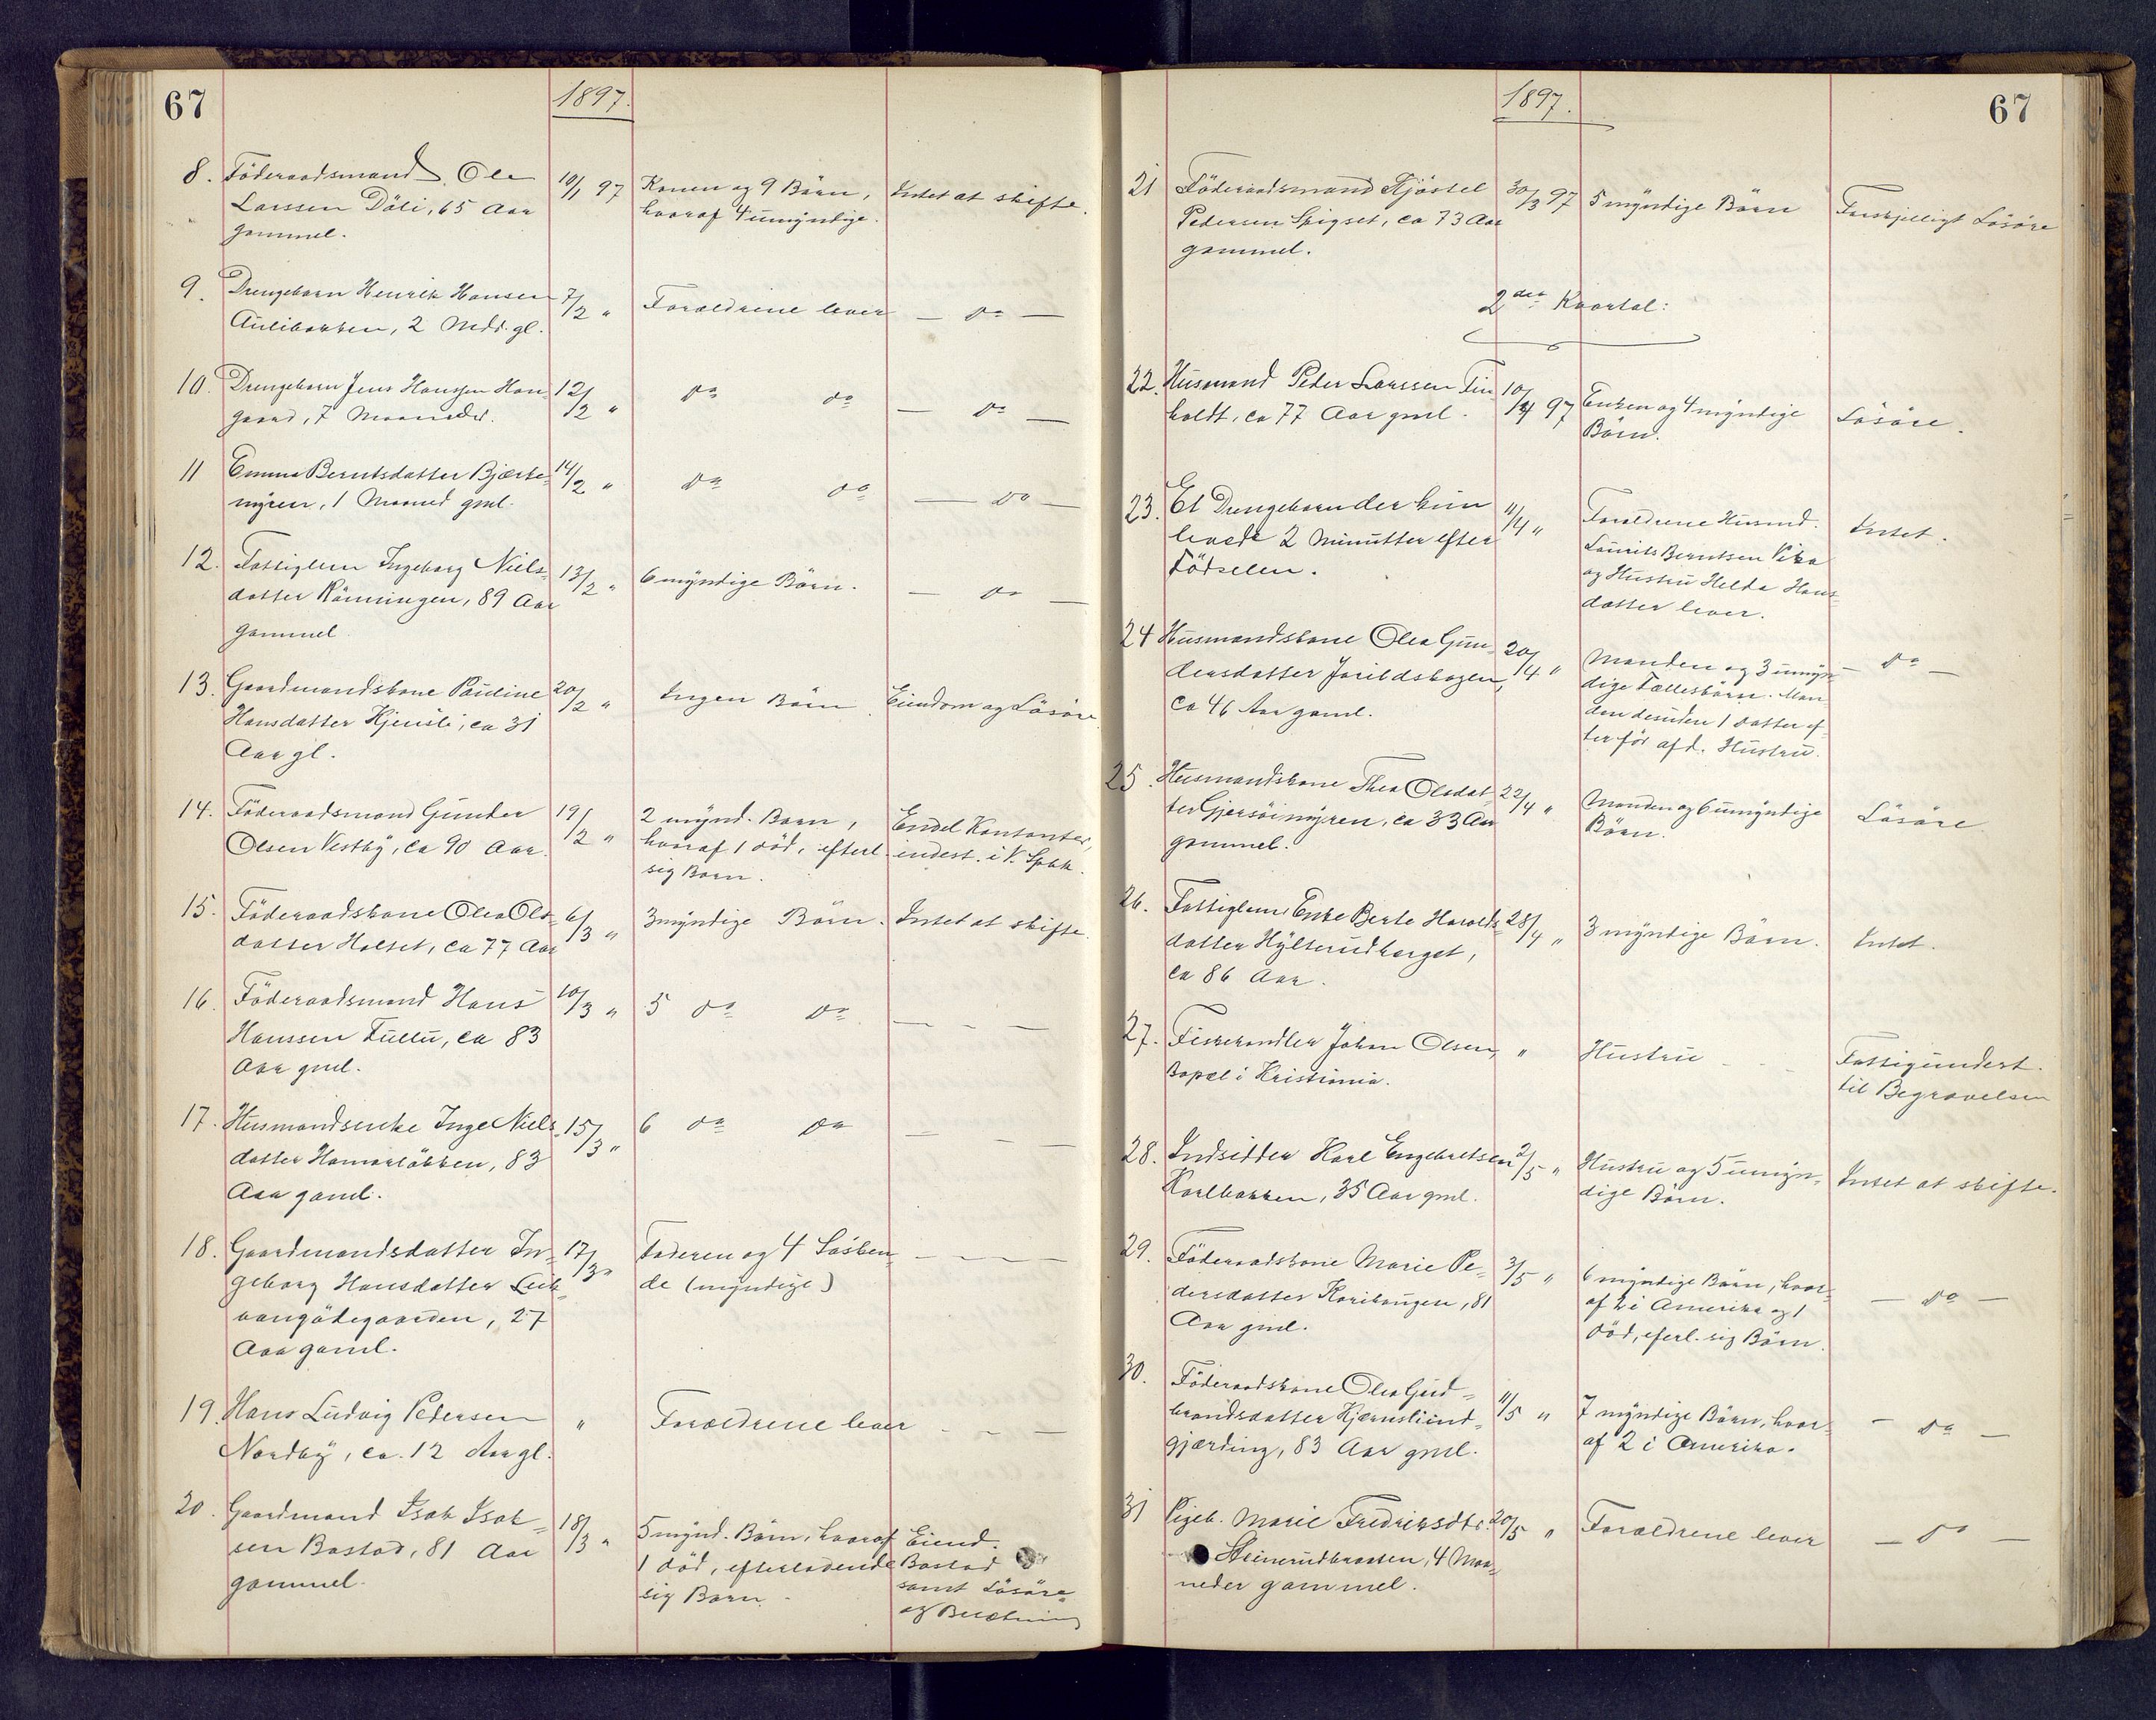 67
1897.
8. Föderaadsmand Ole 10/1 97 Konen og 9 Börn, Intet at skifte.
Larssen Döli, 65 Aar hvoraf 4 umyndige.
gammel.
9. Drengebarn Henrik Hansen 7/2 " Forældrene lever — do —
Aulibakken, 2 Mdr. gl.
10. Drengebarn Jens Hanssen Hau- 12/2 " do do — do —
gaard, 7 Maaneder.
11 Emma Berntsdatter Bjærke- 14/2 " do do — do —
myren, 1 Maaned gml.
12. Fattiglem Ingeborg Niels- 13/2 " 6 myndige Börn. — do —
datter Rönningen, 89 Aar
gammel
13. Gaardmandskone Pauline 20/2 " Ingen Börn. Eiendom og Lösöre
Hansdatter Kjensli, ca 31
Aar gl.
14. Föderaadsmand Gunder 19/2 " 2 mynd. Barn, Endel Kontanter,
Olsen Vestby, ca 90 Aar. hvoraf 1 död, efterl. indest. i V. Spbk.
sig Barn.
15. Föderaadskone Olea Ols- 6/3 " 3 myndige Börn. Intet at skifte.
datter Holset, ca 77 Aar
16. Föderaadsmand Hans 10/3 " 5 do do — — —
Hanssen Tullu, ca 83
Aar gml.
17. Husmandsenke Inge Niels- 15/3 " 6 do do — — —
datter Hamarlökken, 83
Aar gaml.
18. Gaardmandsdatter In- 17/3 " Faderen og 4 Södsken- — — —
geborg Hansdatter
27 de (myndige)
Aar gaml.
19. Hans Ludvig Pedersen " Forældrene lever — — —
Nordby, ca. 12 Aar gl.
20. Gaardmand Isak Isak- 18/3 " 5 mynd. Börn, hvoraf Eiend.
sen Bastad, 81 Aar 1 död, efterladende Bastad
gammel. sig Barn. samt Lösöre
og Besætning
67
1897.
21 Föderaadsmand Kjöstel 30/3 97 5 myndige Börn Forskjelligt Lösöre
Pedersen Spigset, ca 73 Aar
gammel.
2det Kvartal:
22. Husmand Peder Larssen Tin- 10/4 97 Enken og 4 myndige Lösöre.
holdt, ca 77 Aar gml. Börn.
23. Et Drengebarn der kun 11/4 " Forældrene Husmd. Intet.
levede 2 Minutter efter Laurits Berntsen Vika
Födselen. og Hustru Helda Hans-
datter lever.
24 Husmandskone Olea Gun- 20/4 " Manden og 3 umyn- — do —
dersdatter Jorildshagen, dige Fællesbörn. Man-
ca 46 Aar gaml. den desuden 1 Datter ef-
ter för afd. Hustru.
25. Husmandskone Thea Olsdat- 22/4 " Manden og 6 umyndige Lösöre
ter Gjersöimyren, ca 33 Aar Börn.
gammel.
26. Fattiglem Enke Berte Harolds- 28/4 " 3 myndige Börn. Intet.
datter Hylterudberget,
ca 86 Aar.
27. Fiskehandler Johan Olsen, " Hustru Fattigunderst.
Bopæl i Kristiania. til Begravelsen
28. Indsidder Karl Engebretsen 2/5 " Hustru og 5 umyn- Intet at skifte.
Karlbakken, 35 Aar gml. dige Börn.
29. Föderaadskone Marie Pe- 3/5 " 6 myndige Börn, hvor- — do —
dersdatter Karihaugen, 81 af 2 i Amerika og 1
Aar gml. död, efterl. sig Börn.
30. Föderaadskone Olea Gud- 11/5 " 7 myndige Börn, hvor- — do —
brandsdatter Hjærnsliind- af 2 i Amerika.
gjærding, 83 Aar gml.
31 Pigeb. Marie Fredriksdtr. 20/5 " Forældrene lever — do —
Steinerudbraaten, 4 Maa-
neder gammel.